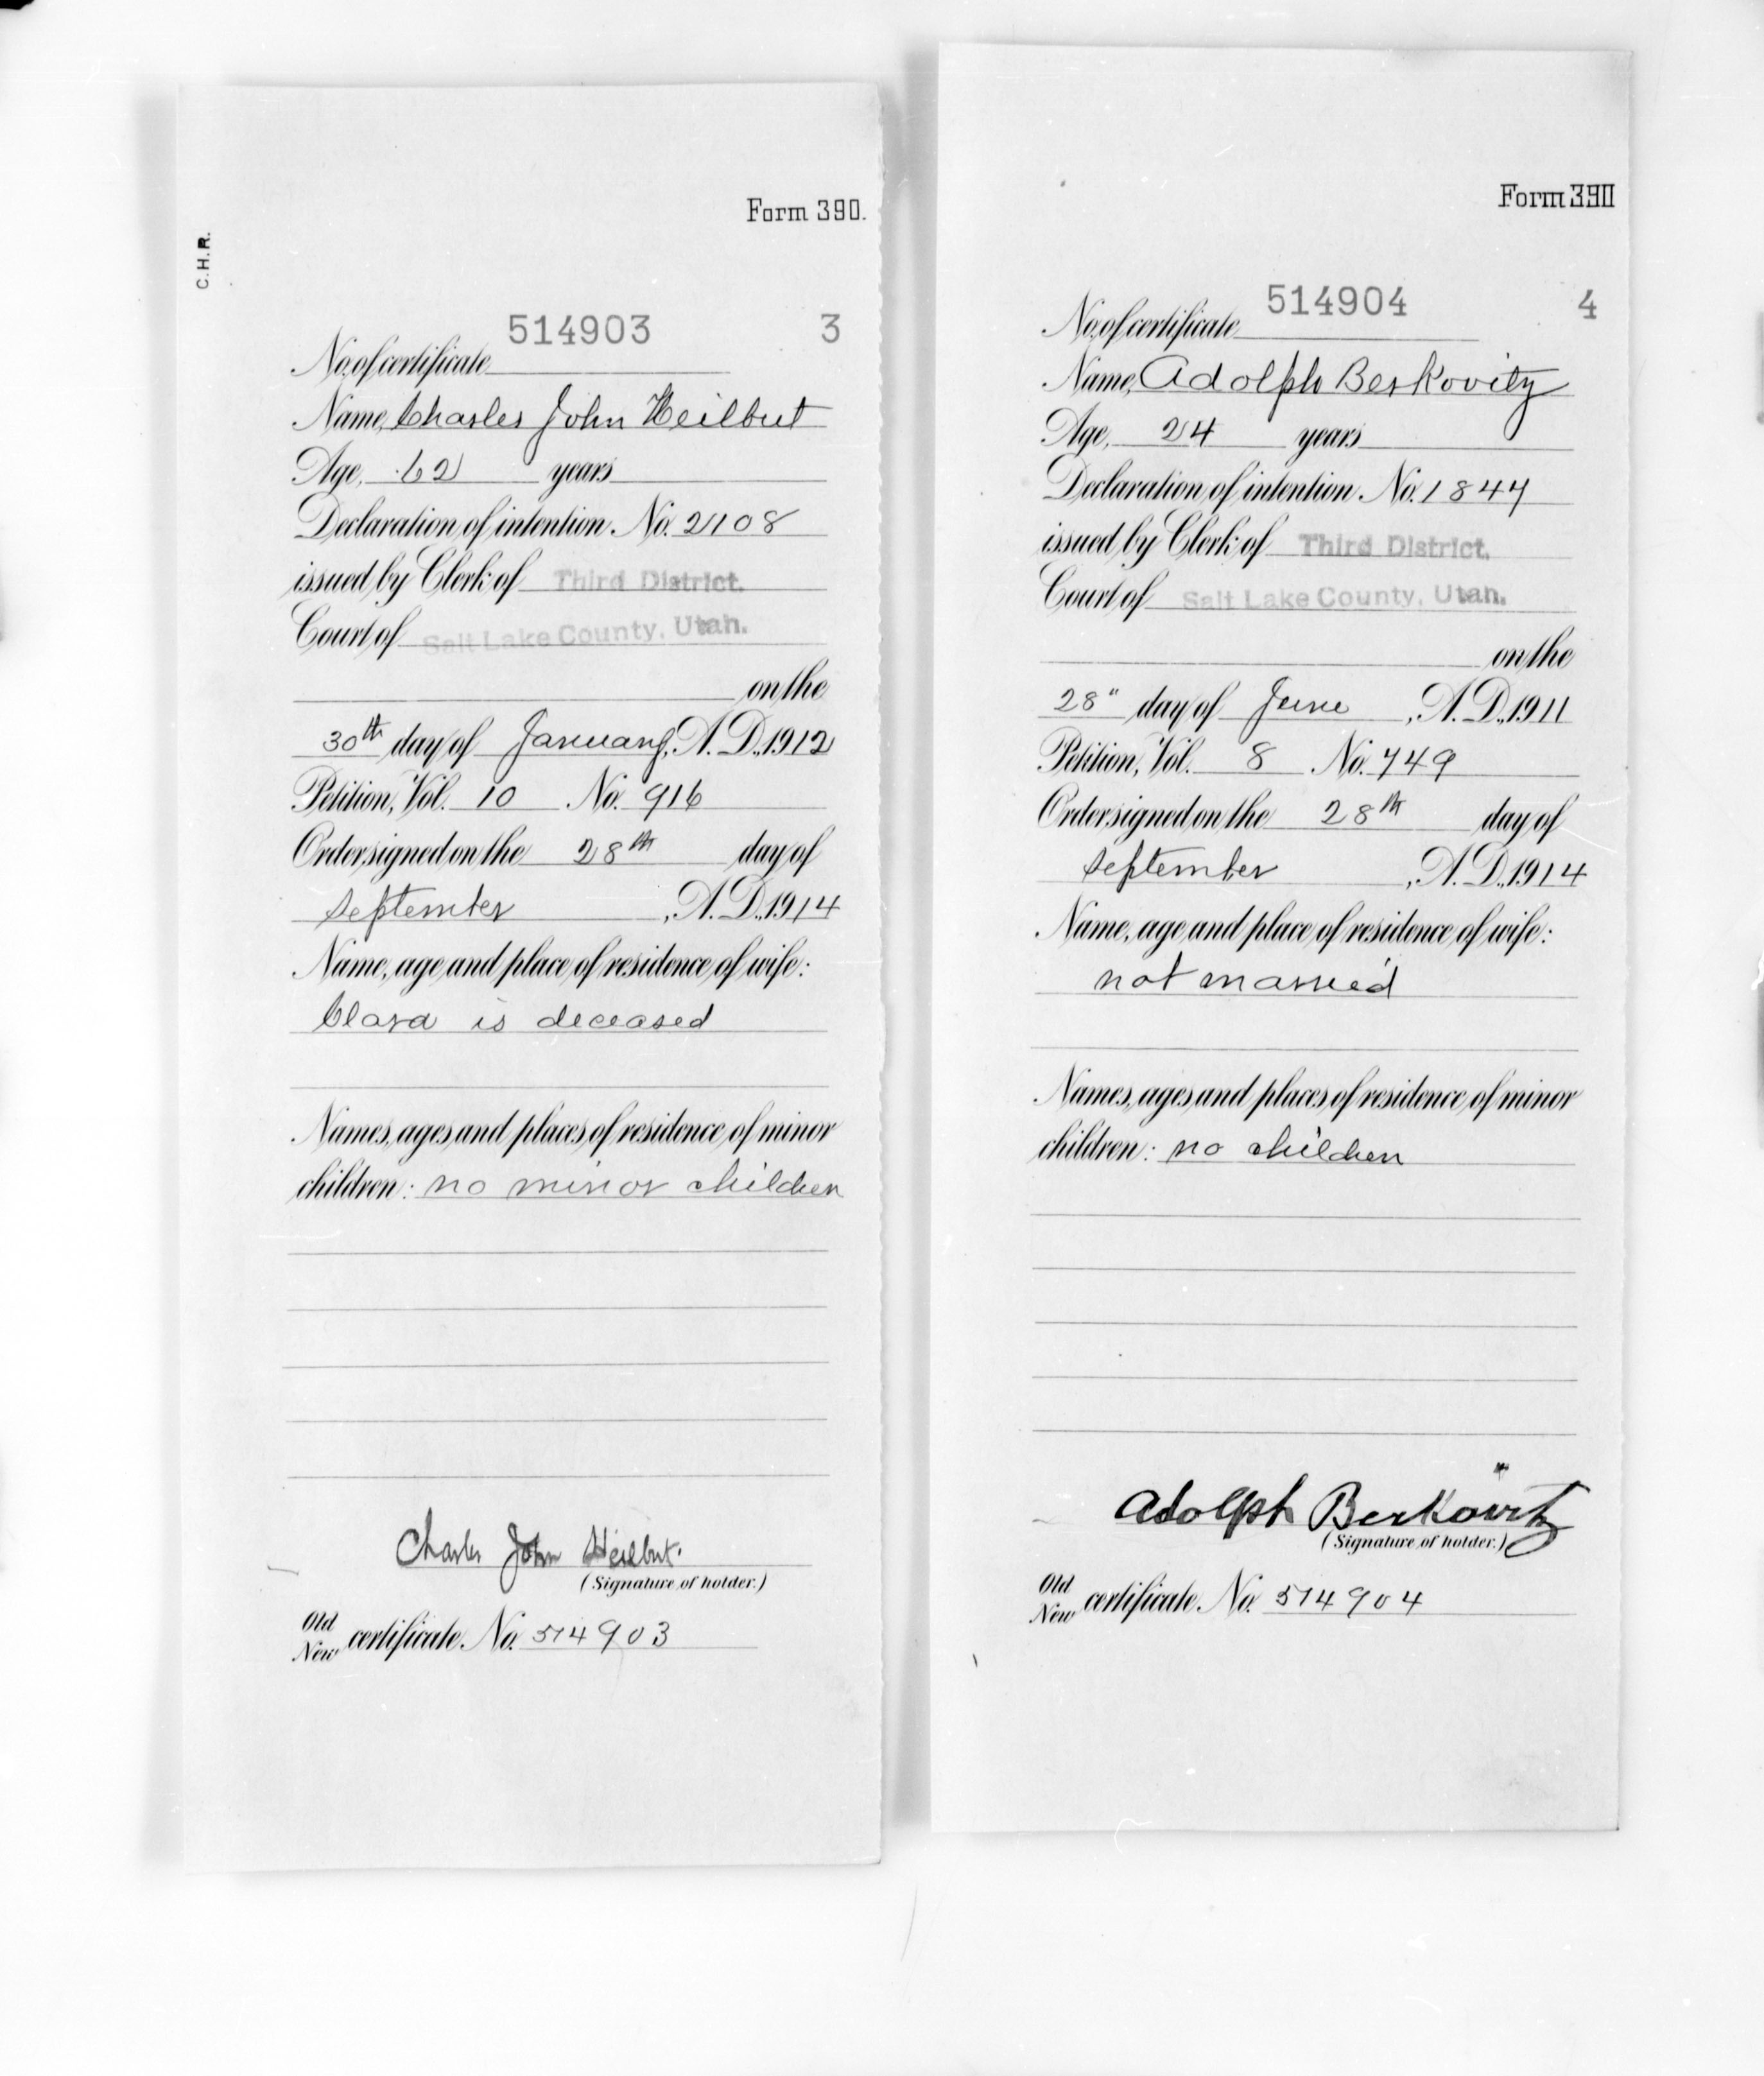 C.H.R.
Form 390.
514903 3
No. of certificate
Name, Charles John Heilbut
Age, 62 years
Declaration of intention No. 2108
issued by Clerk of Third District.
Court of Salt Lake County, Utah.
on the
30th day of January, A. D., 1912
Petition, Vol. 10 No. 916
Order signed on the 28th day of
September, A. D., 1914
Name, age and place of residence of wife:
Clara is deceased
Names, ages and places of residence of minor
children: no minor children
Charles John Heilbut.
(Signature of holder.)
Old
New certificate No. 514903
Form 390
514904 4
No. of certificate
Name, Adolph Berkovitz
Age, 24 years
Declaration of intention No. 1847
issued by Clerk of Third District.
Court of Salt Lake County, Utah.
on the
28" day of June, A. D., 1911
Petition, Vol. 8 No. 749
Order signed on the 28th day of
September, A. D., 1914
Name, age and place of residence of wife:
not married
Names, ages and places of residence of minor
children: no children
Adolph Berkovitz
(Signature of holder.)
Old
New certificate No. 514904